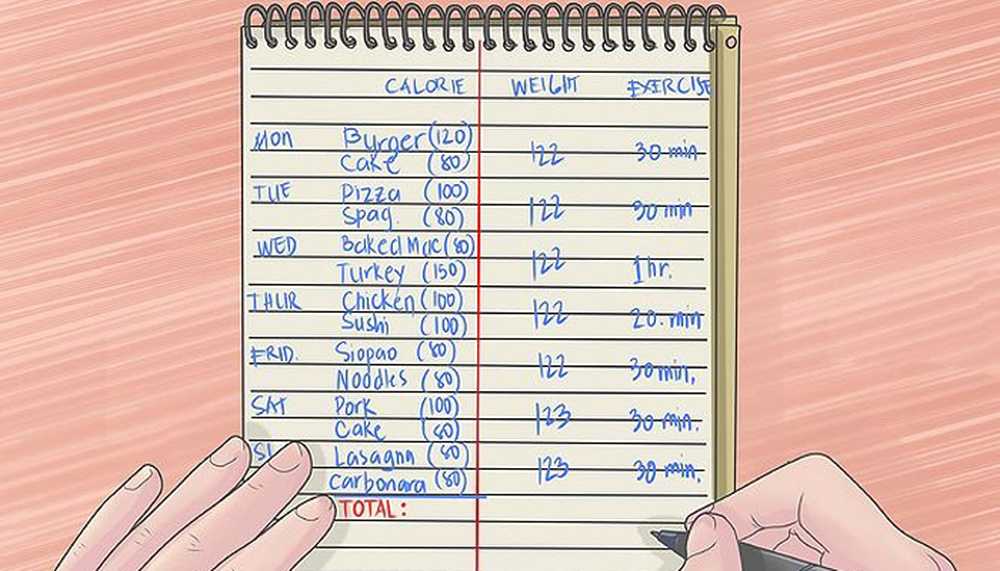 CALORIE WEIGHT EXERCISE
MON Burger (120)
Cake (80) 122 30 min
TUE Pizza (100)
Spag. (80) 122 30 min
WED Baked Mac (80)
Turkey (150) 122 1 hr.
THUR Chicken (100)
Sushi (100) 122 20. min
FRID. Siopao (80)
Noodles (80) 122 30 min.
SAT Pork (100)
Cake (80) 123 30 min.
Lasagna (80)
Carbonara (80) 123 30 min.
TOTAL: